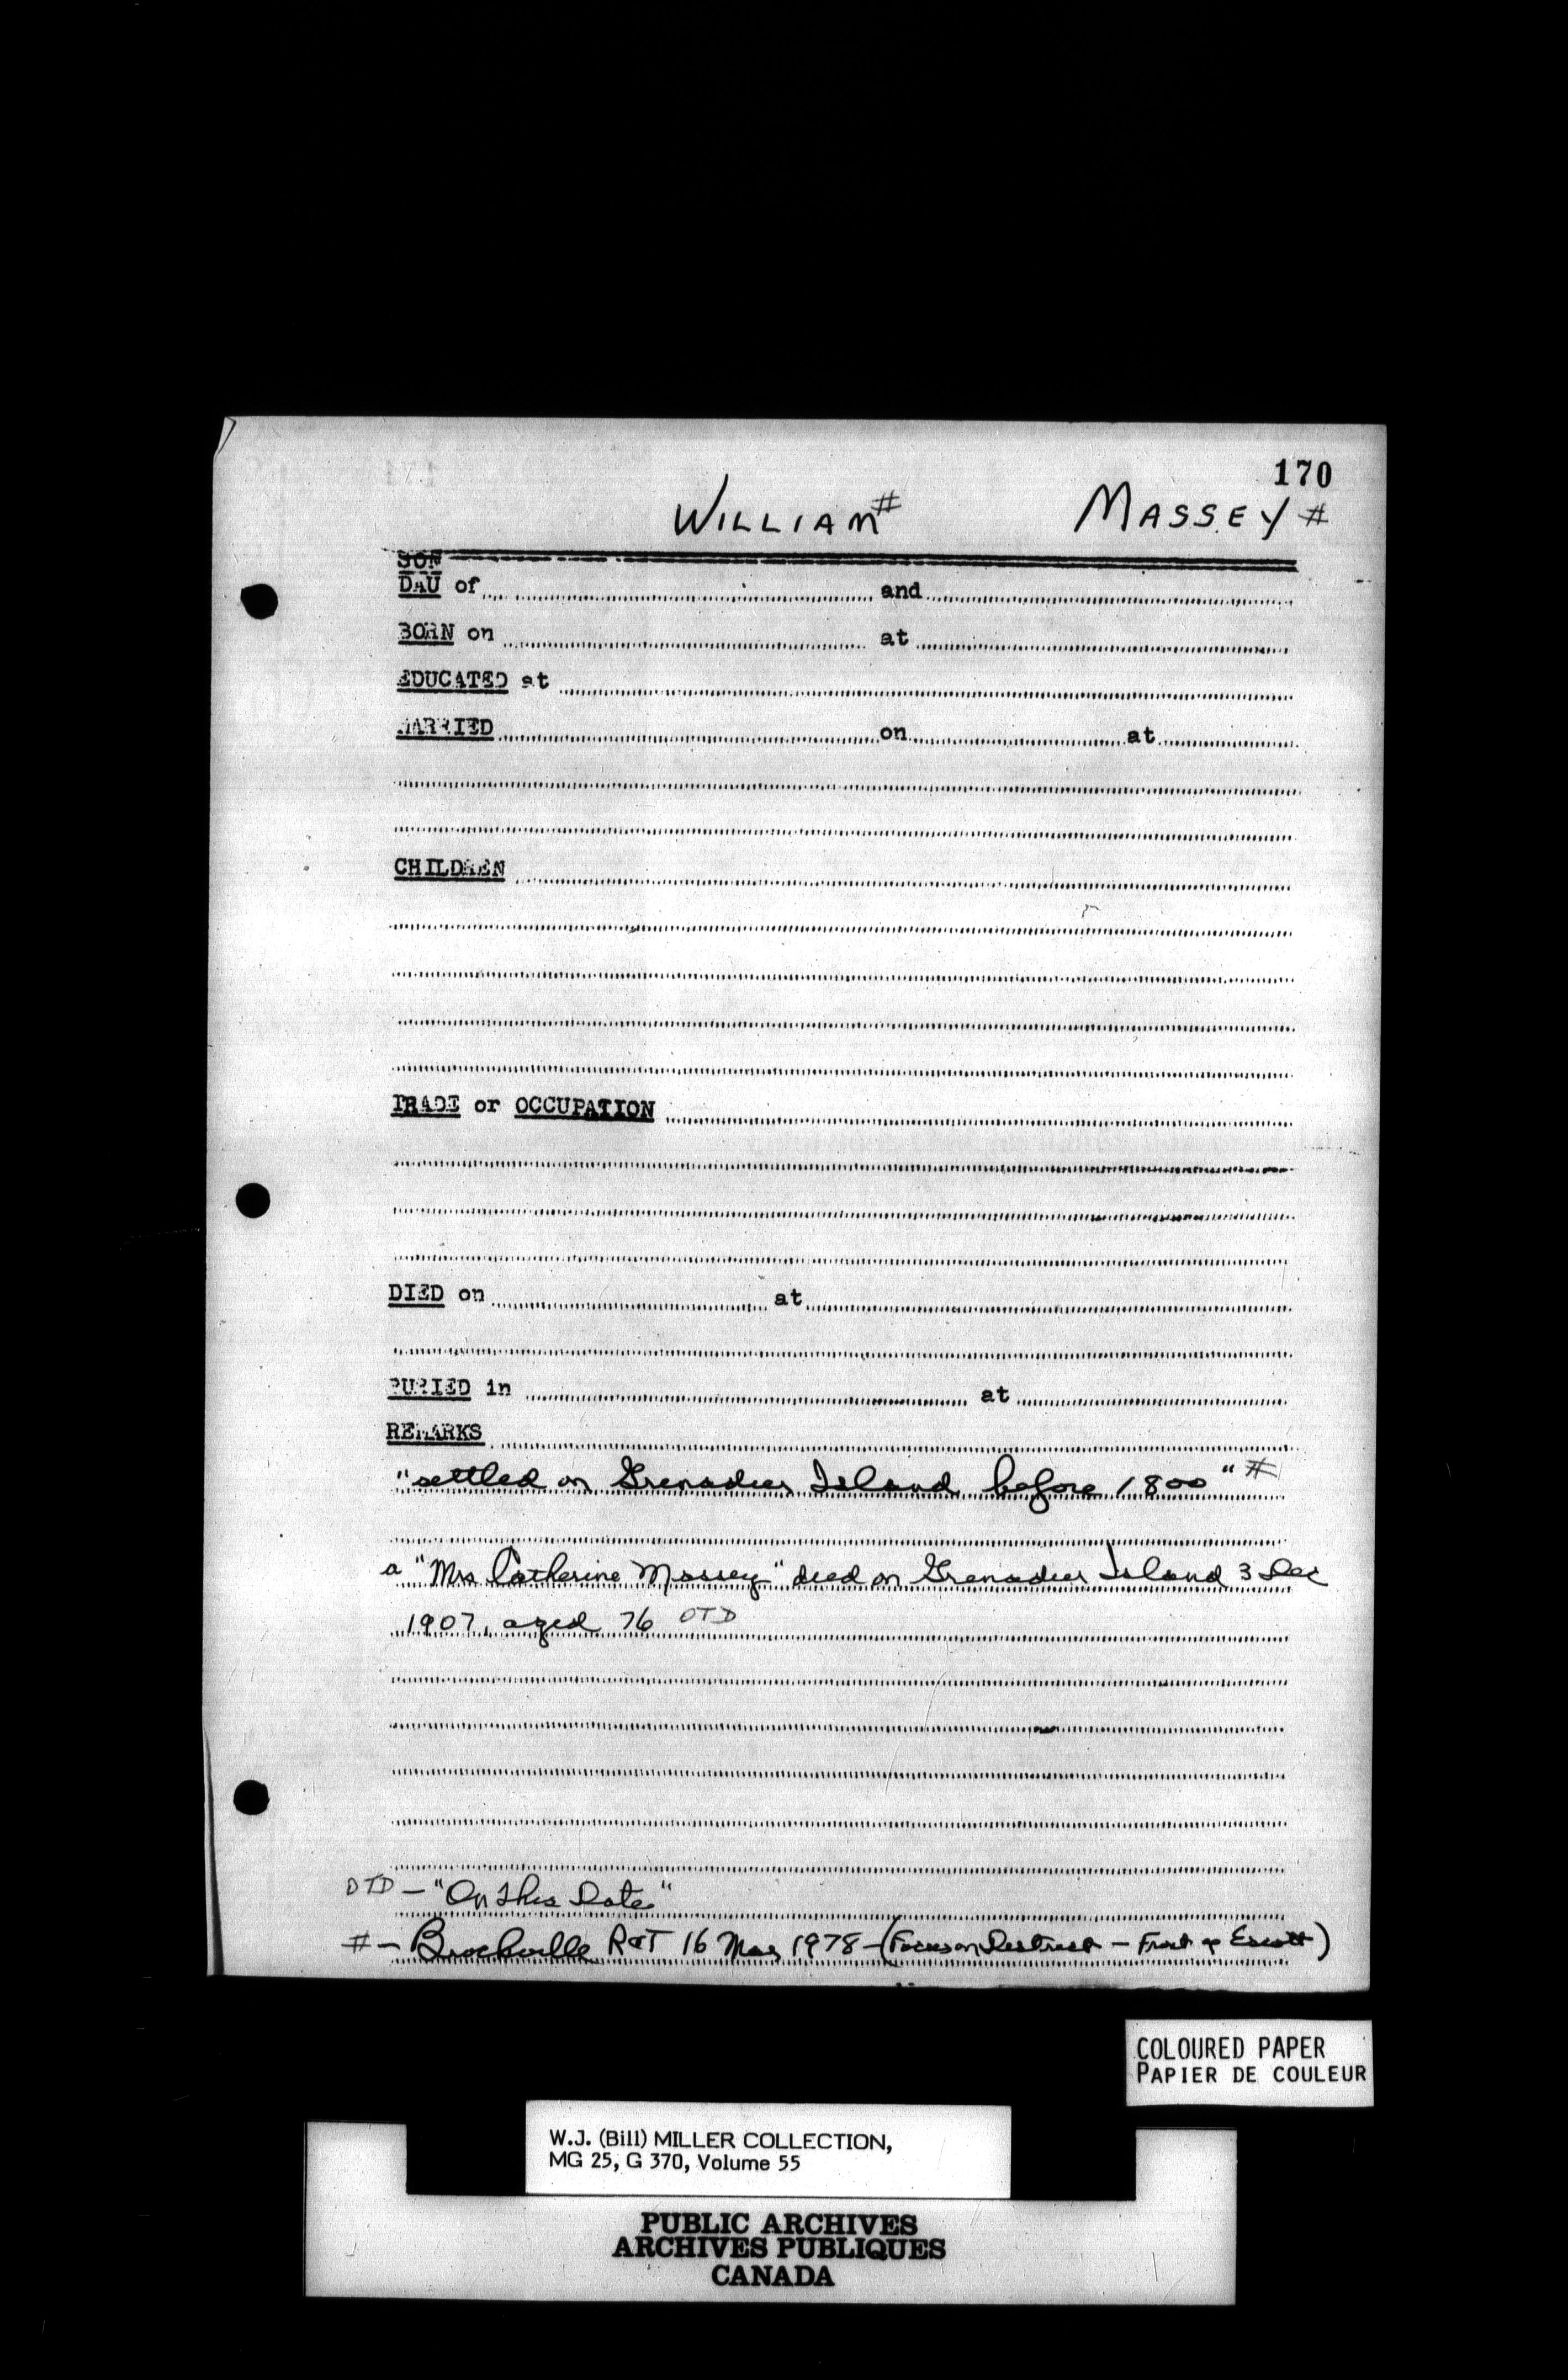 170
WILLIAM # MASSEY #
SON
DAU of and
BORN on at
EDUCATED at
MARRIED on at
CHILDREN
TRADE or OCCUPATION
DIED on at
BURIED in at
REMARKS
"settled on Grenadier Island before 1800" #
a "Mrs Catherine Massey" died on Grenadier Island 3 Dec
1907, aged 76 OTD
OTD - "On This Date"
# - Brockville R&T 16 Mar 1978 - (Focus on District - Front of Escott)
COLOURED PAPER
PAPIER DE COULEUR
W.J. (Bill) MILLER COLLECTION,
MG 25, G 370, Volume 55
PUBLIC ARCHIVES
ARCHIVES PUBLIQUES
CANADA